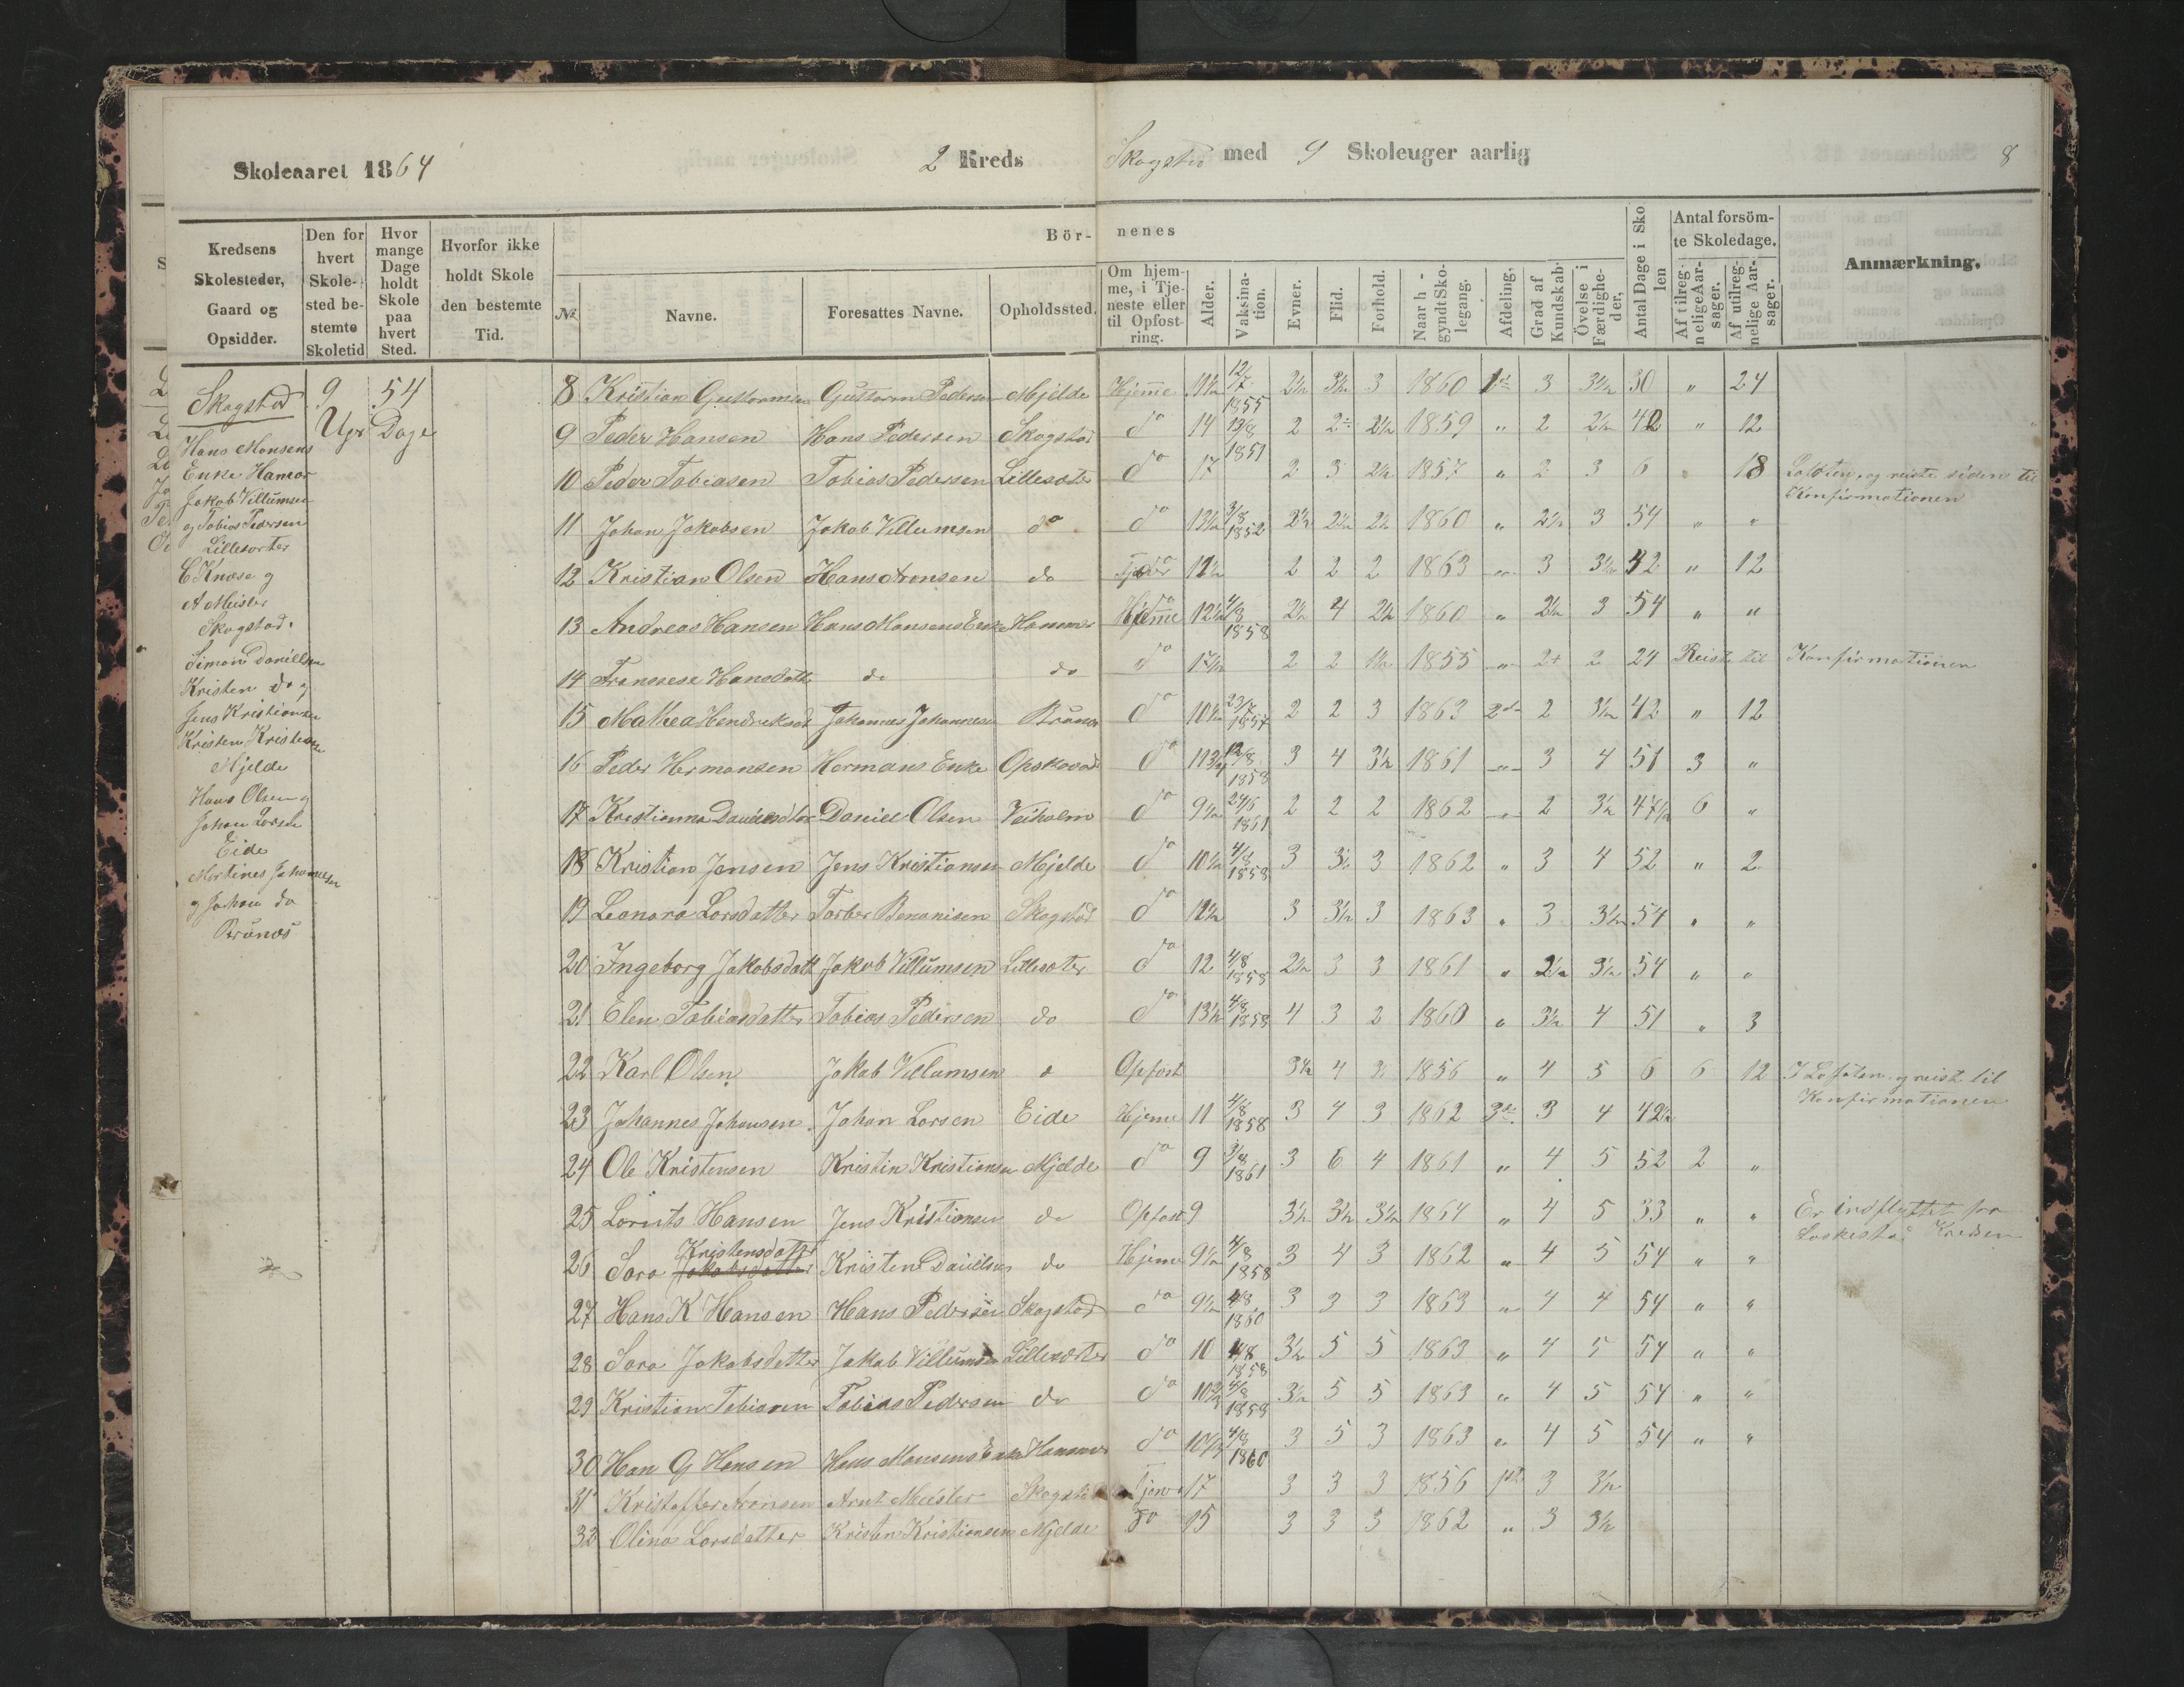 Skoleaaret 1864
2 Kreds
Skogstad med 9 Skoleuger aarlig
8
Kredsens Skolesteder, Gaard og Opsidder.
Den for hvert Skolested bestemte Skoletid
Hvor mange Dage holdt Skole paa hvert Sted.
Hvorfor ikke holdt Skole den bestemte Tid.
Bör- nenes
No
Navne.
Foresattes Navne.
Opholdssted.
Om hjemme, i Tjeneste eller til Opfostring.
Alder.
Vaksination.
Evner.
Flid.
Forhold.
Naar h - gyndt Skolegang.
Afdeling.
Grad af Kundskab.
Övelse i Færdigheder,
Antal Dage i Skolen
Antal forsömte Skoledage.
Af tilregnelige Aarsager.
Af utilregnelige Aarsager.
Anmærkning.
Skogstad 9 Ugr 54 Dage
Hans Monsens
Enke Hamar
Jakob Villumsen
og Tobias Pedersen
Lillesæter
C Knose og
A Meisler
Skogstad.
Simon Daniellsen
Kristen do og
Jens Kristiansen
Kristen Kristiansen
Mjelde
Hans Olsen og
Johan Larsen
Eide
Martines Johannesen
og Johan do
Brúnæs
8 Kristian Guttormsen Guttorm Pedersen Mjelde Hjemme 11½ 12/7 1855 2½ 3½ 3 1860 1ste 3 3½ 30 " 24
9 Peder Hansen Hans Pedersen Skogstad do 14 13/8 1851 2 2 2½ 1859 " 2 2½ 42 " 12
10 Peder Tobiasen Tobias Pedersen Lillesæter do 17 2 3 2½ 1857 " 2 3 6 18 Lofoten, og reiste siden til Konfirmationen
11 Johan Jakobsen Jakob Villumsen do do 13½ 3/8 1852 2½ 2½ 2½ 1860 " 2½ 3 54 " "
12 Kristian Olsen Hans Aronsen do 2 2 2 1863 " 3 3½ 42 " 12
13 Andreas Hansen Hans Monsens Enke Hammer Hjemme 12½ 4/8 1858 2½ 4 2½ 1860 " 2½ 3 54 " "
14 Fransese Hansdatter do do do 2 2 1½ 1855 " 2+ 2 24 Reist til Konfirmationen
15 Mathea Hendriksd Johannes Johannesen Brúnæs do 10½ 23/7 1857 2 2 3 1863 2den 2 3½ 42 " 12
16 Peder Hermansen Hermans Enke do 11¾ 12/8 1858 3 4 3½ 1861 " 3 4 51 3 "
17 Kristianna Danielsdtr Daniel Olsen Veiholm do 9½ 24/6 1861 2 2 2 1862 " 2 3½ 47½ 6 "
18 Kristian Jensen Jens Kristiansen Mjelde do 10½ 4/8 1858 3 3½ 3 1862 " 3 4 52 " 2
19 Leonara Larsdatter Torber Benonisen Skogstad do 12½ 3 3½ 3 1863 " 3 3½ 54 " "
20 Ingeborg Jakobsdatt Jakob Villumsen Lillesæter do 12 4/8 1858 2½ 3 3 1861 " 2½ 3½ 54 " "
21 Elen Tobiasdatter Tobias Pedersen do do 13½ 4/8 1858 4 3 2 1860 " 3½ 4 51 " 3
22 Karl Olsen Jakob Villumsen Opfost 3½ 4 3 1856 " 4 5 6 6 12 I Lofoten og reist til Konfirmationen
23 Johannes Johansen Johan Larsen Eide Hjeme 11 4/8 1858 3 4 3 1862 3die 3 4 42½
24 Ole Kristensen Kristin Kristiansen Mjelde do 9 3/8 1861 3 6 4 1861 " 4 5 52 2 "
25 Lornts Hansen Jens Kristiansen do Opfost 9 3½ 3½ 3½ 1864 " 4 5 33 " " Er indflyttet fra Kredsen
26 Sara Kristensdatter Jakobsdatter Kristen Daniellsen do Hjeme 9½ 4/8 1858 3 4 3 1862 " 4 5 54 " "
27 Hans K Hansen Hans Pedersen Skogstad do 9½ 4/8 1860 3 3 3 1863 " 4 4 54 " "
28 Sara Jakobsdatter Jakob Villumsen Lillesæter do 10 4/8 1858 3½ 5 5 1863 " 4 5 54 " "
29 Kristian Tobiasen Tobias Pedersen do do 4/8 1858 3½ 5 5 1863 " 4 5 54 " "
30 Han G Hansen Hans Monsens Enke Hammer do 10½ 4/8 1860 3 5 3 1863 " 4 5 54 " "
31 Kristoffer Aronsen Arnt Meisler Skogstad Tjener 17 3 3 3 1856 1ste 3 3½
32 Olina Larsdatter Kristen Kristiansen Mjelde do 15 3 3 3 1862 " 3 3½